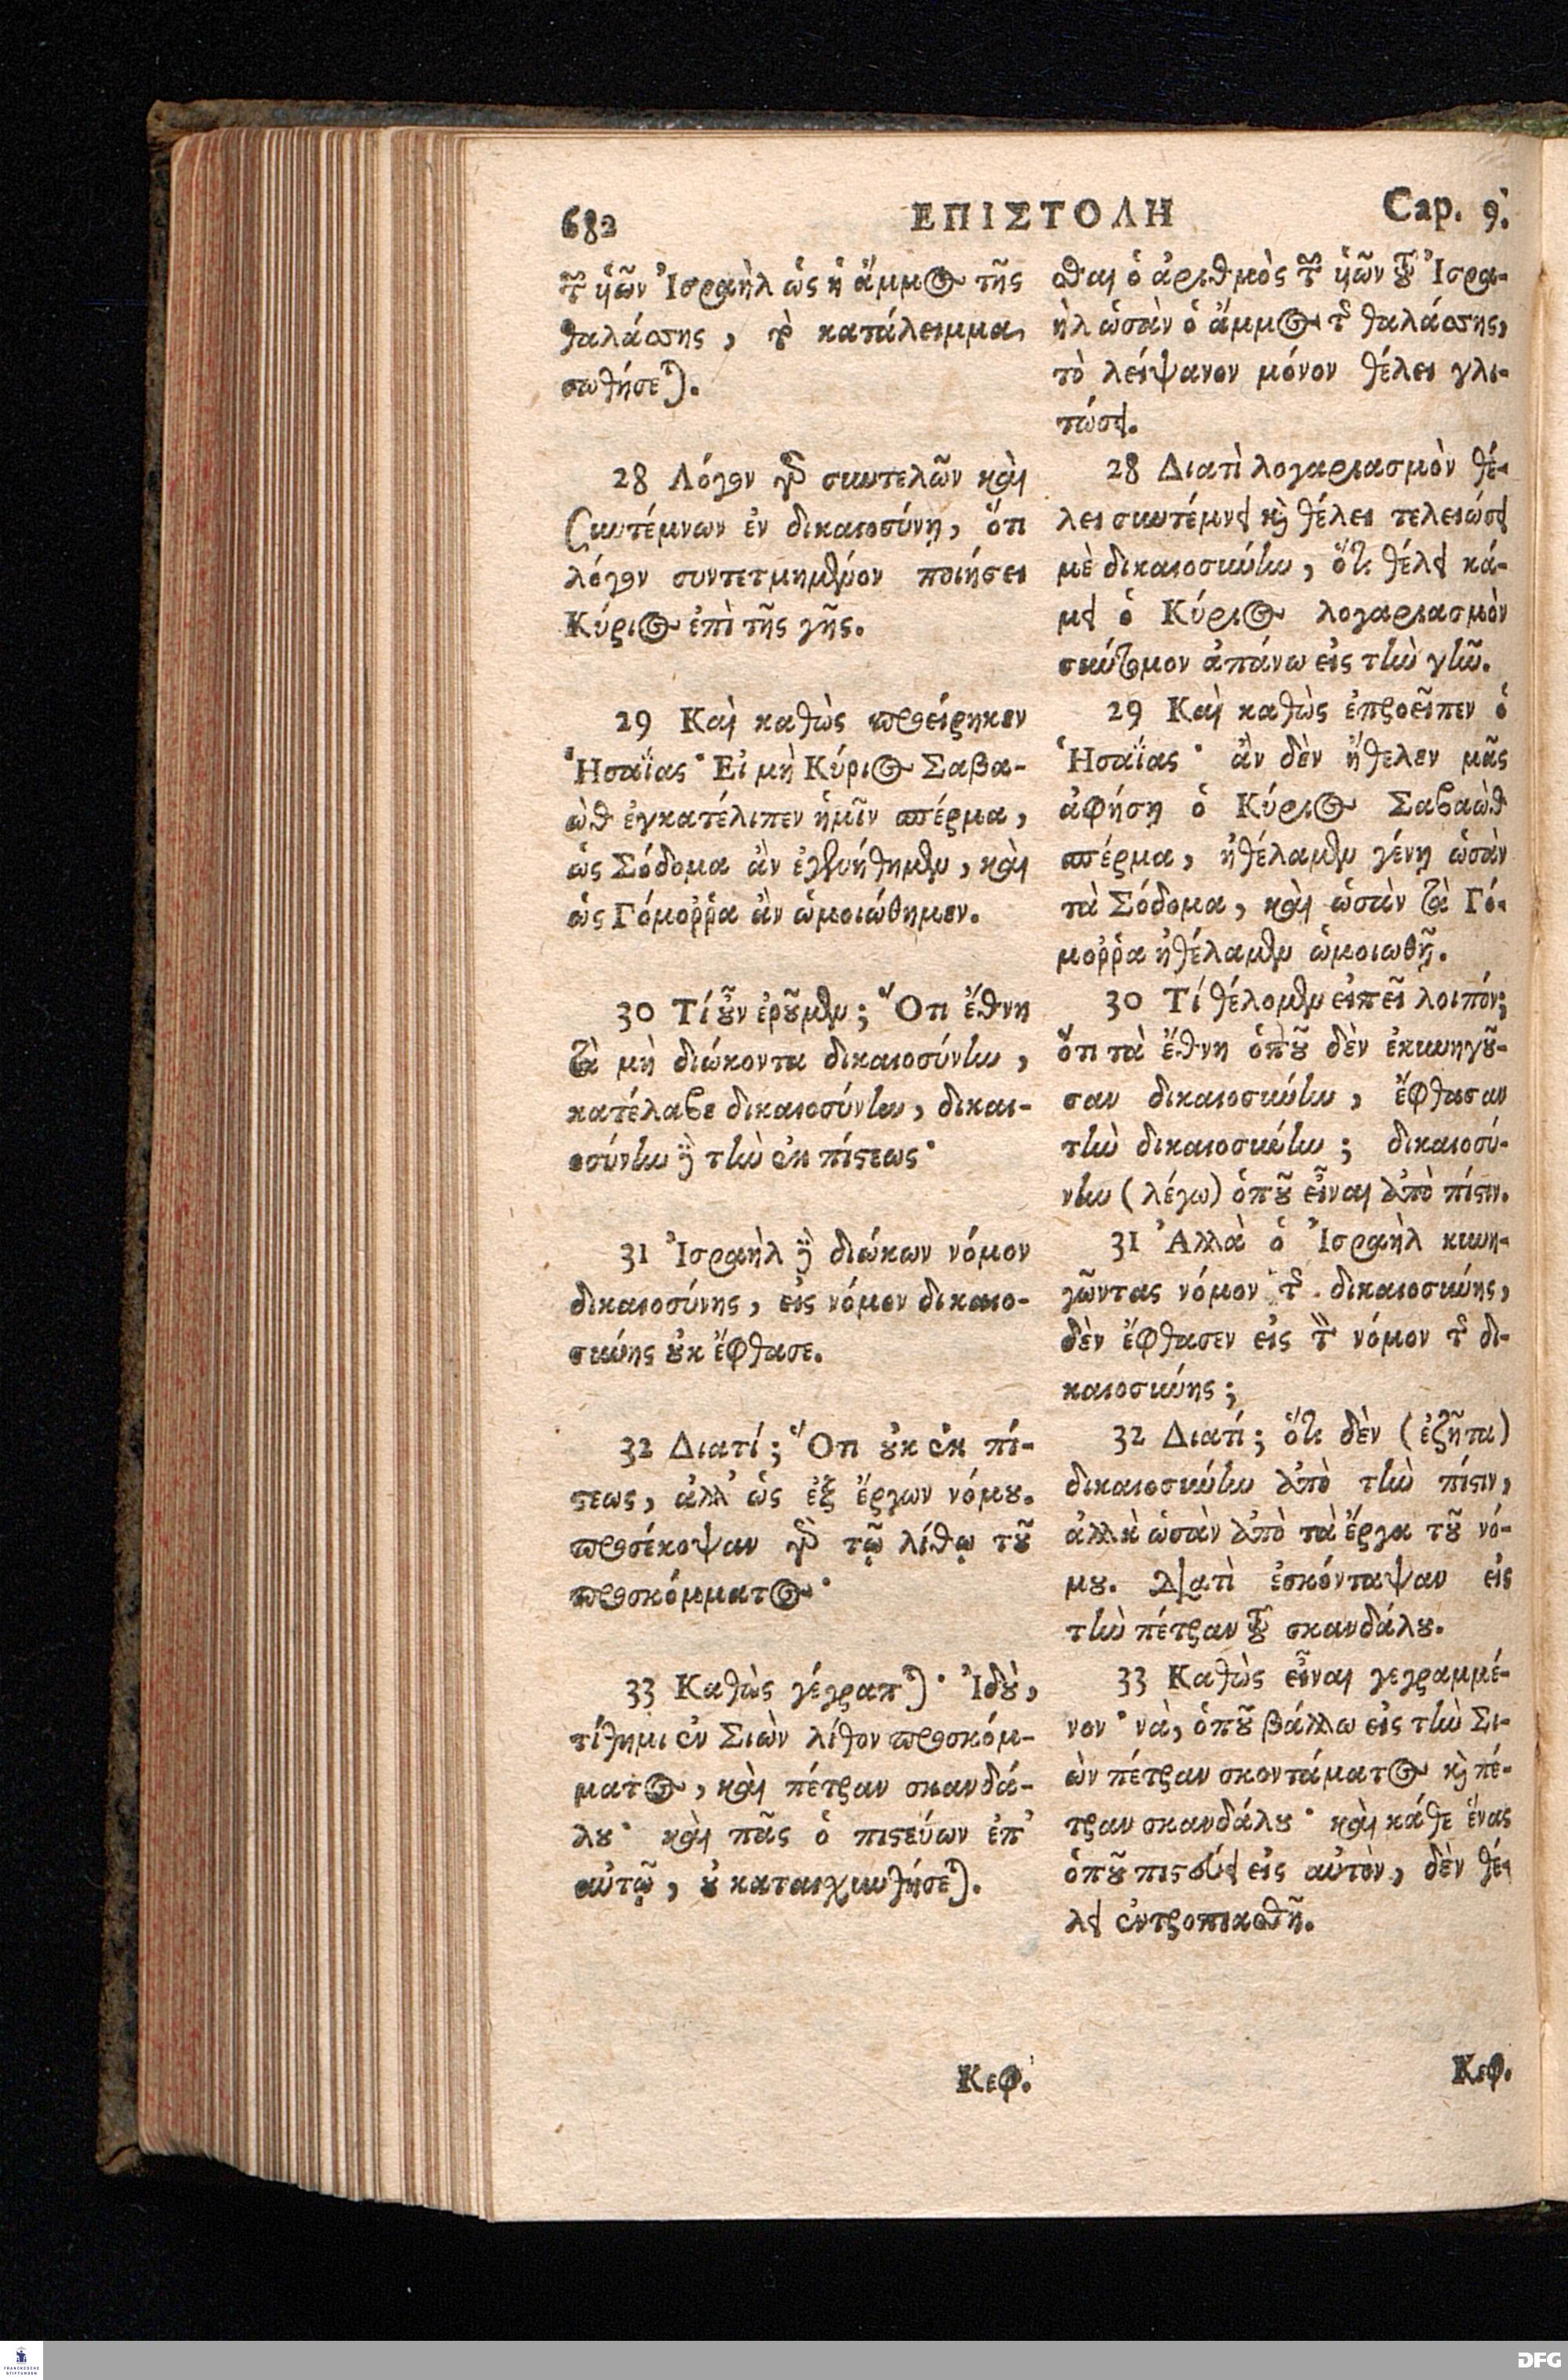 682
ΕΠΙΣΤΟΛΗ
Cap. 9.
τῶν ὑῶν Ἰσραὴλ ὡς ἡ ἄμμος τῆς
θαλάσσης, τὸ κατάλειμμα
σωθήσεται.
28 Λόγον γὰρ συντελῶν καὶ
συντέμνων ἐν δικαιοσύνῃ, ὅτι
λόγον συντετμημένον ποιήσει
Κύριος ἐπὶ τῆς γῆς.
29 Καὶ καθὼς προείρηκεν
Ἡσαΐας· Εἰ μὴ Κύριος Σαβα-
ὼθ ἐγκατέλιπεν ἡμῖν σπέρμα,
ὡς Σόδομα ἂν ἐγενήθημεν, καὶ
ὡς Γόμοῤῥα ἂν ὡμοιώθημεν.
30 Τί οὖν ἐροῦμεν; Ὅτι ἔθνη
τὰ μὴ διώκοντα δικαιοσύνην,
κατέλαβε δικαιοσύνην, δικαι-
οσύνην δὲ τὴν ἐκ πίστεως·
31 Ἰσραὴλ δὲ διώκων νόμον
δικαιοσύνης, εἰς νόμον δικαιο-
σύνης οὐκ ἔφθασε.
32 Διατί; Ὅτι οὐκ ἐκ πί-
στεως, ἀλλ' ὡς ἐξ ἔργων νόμου.
προσέκοψαν γὰρ τῷ λίθῳ τοῦ
προσκόμματος·
33 Καθὼς γέγραπται· Ἰδοὺ,
τίθημι ἐν Σιὼν λίθον προσκόμ-
ματος, καὶ πέτραν σκανδά-
λου· καὶ πᾶς ὁ πιστεύων ἐπ'
αὐτῷ, οὐ καταισχυνθήσεται.
Κεφ.
σθαι ὁ ἀριθμὸς τῶν ὑῶν τοῦ Ἰσρα-
ὴλ ὡσὰν ὁ ἄμμος τῆς θαλάσσης,
τὸ λείψανον μόνον θέλει γλι-
τώσει.
28 Διατὶ λογαριασμὸν θέ-
λει συντέμνει καὶ θέλει τελειώσει
μὲ δικαιοσύνην, ὅτι θέλει κά-
μει ὁ Κύριος λογαριασμὸν
σύντομον ἀπάνω εἰς τὴν γῆν.
29 Καὶ καθὼς ἐπροεῖπεν ὁ
Ἡσαΐας· ἂν δὲν ἤθελεν μᾶς
ἀφήσῃ ὁ Κύριος Σαβαὼθ
σπέρμα, ἠθέλαμεν γένῃ ὡσὰν
τὰ Σόδομα, καὶ ὡσὰν τὰ Γό-
μοῤῥα ἠθέλαμεν ὡμοιωθῆ.
30 Τί θέλομεν εἰπεῖ λοιπόν;
ὅτι τὰ ἔθνη ὁποῦ δὲν ἐκυνηγοῦ-
σαν δικαιοσύνην, ἔφθασαν
τὴν δικαιοσύνην; δικαιοσύ-
νην (λέγω) ὁποῦ εἶναι ἀπὸ πίστιν.
31 Ἀλλὰ ὁ Ἰσραὴλ κυνη-
γῶντας νόμον τῆς δικαιοσύνης,
δὲν ἔφθασεν εἰς τὸν νόμον τῆς δι-
καιοσύνης;
32 Διατί; ὅτι δὲν (ἐζῆτα)
δικαιοσύνην ἀπὸ τὴν πίστιν,
ἀλλὰ ὡσὰν ἀπὸ τὰ ἔργα τοῦ νό-
μου. Διατὶ ἐσκόνταψαν εἰς
τὴν πέτραν τοῦ σκανδάλου.
33 Καθὼς εἶναι γεγραμμέ-
νον· νὰ, ὁποῦ βάλλω εἰς τὴν Σι-
ὼν πέτραν σκοντάματος καὶ πέ-
τραν σκανδάλου· καὶ κάθε ἕνας
ὁποῦ πιστεύει εἰς αὐτὸν, δὲν θέ-
λει ἐντροπιασθῆ.
Κεφ.
FRANCKESCHE
STIFTUNGEN
DFG